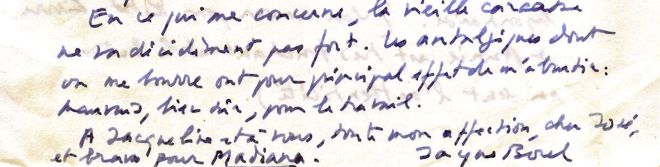 En ce qui me concerne, la vieille carcasse
ne va décidément pas fort. Les antalgiques dont
on me bourre ont pour principal effet de m'abrutir :
mauvais, bien sûr, pour le travail.
A Jacqueline et à vous, toute mon affection, cher José,
et bravo pour Madiana. Jacques Borel